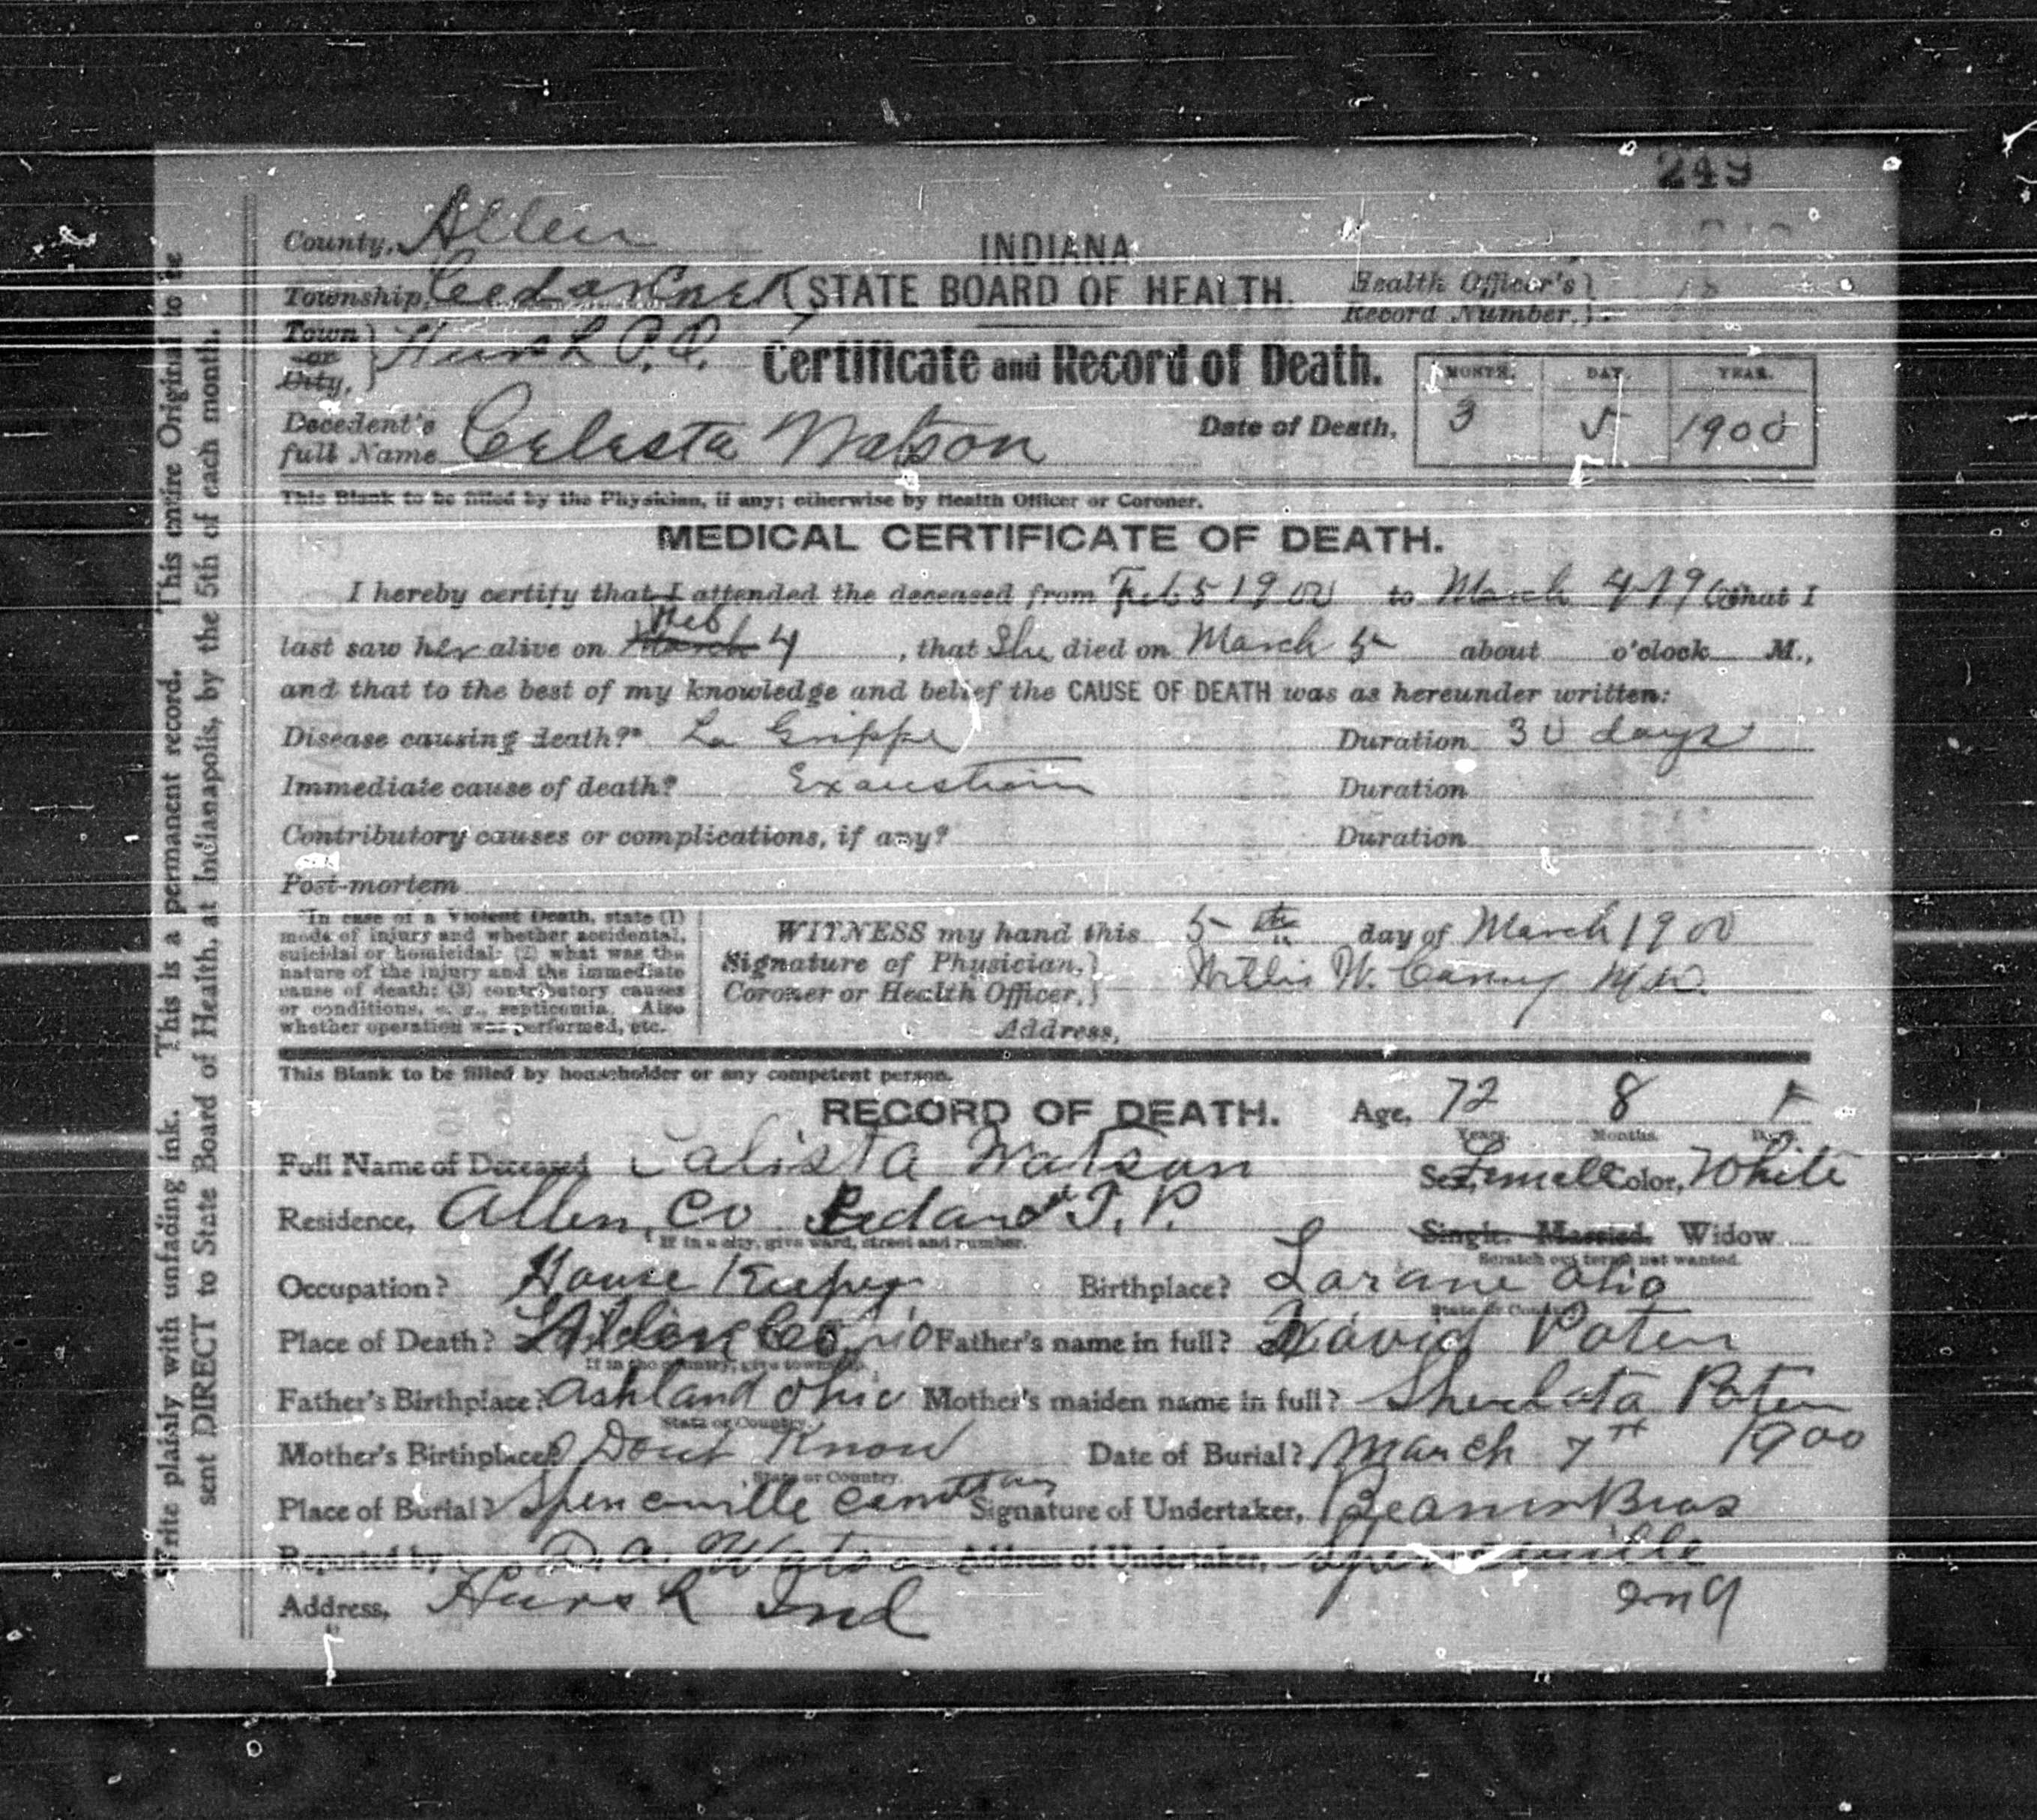 249
County, Allen
INDIANA
Township, Cedar Creek STATE BOARD OF HEALTH.
Health Officer's
Record Number.
Town or City, Hursh P.O.
Certificate and Record of Death.
MONTH. DAY. YEAR.
Decedent's full Name Celesta Watson Date of Death, 3 5 1900
This Blank to be filled by the Physician, if any; otherwise by Health Officer or Coroner.
MEDICAL CERTIFICATE OF DEATH.
I hereby certify that I attended the deceased from Feb 5 1900 to March 4 1900 that I
last saw her alive on March Feb 4, that She died on March 5 about o'clock M.,
and that to the best of my knowledge and belief the CAUSE OF DEATH was as hereunder written:
Disease causing death?* La Grippe Duration 30 days
Immediate cause of death? Exaustion Duration
Contributory causes or complications, if any? Duration
Post-mortem
*In case of a Violent Death, state (1)
mode of injury and whether accidental,
suicidal or homicidal; (2) what was the
nature of the injury and the immediate
cause of death; (3) contributory causes
or conditions, e. g., septicemia. Also
whether operation was performed, etc.
WITNESS my hand this 5th day of March 1900
Signature of Physician, Coroner or Health Officer, Willis W. M.D.
Address,
This Blank to be filled by householder or any competent person.
RECORD OF DEATH. Age, 72 8
Years. Months. Days.
Full Name of Deceased Calista Watson Sex, Female Color, White
Residence, Allen Co T. P.
If in a city, give ward, street and number.
Single. Married. Widow
Scratch out terms not wanted.
Occupation? House Keeper Birthplace? Lorane Ohio
State or Country.
Place of Death? Allen Co Father's name in full? David Poten
If in the country, give township.
Father's Birthplace? Ashland Ohio Mother's maiden name in full? Poten
State or Country.
Mother's Birthplace? Dont Know Date of Burial? March 7th 1900
State or Country.
Place of Burial? Spencerville Signature of Undertaker, Beams Bros
Reported by D. A. Watson Address of Undertaker, Spencerville
Address, Hursh Ind Ind
Write plainly with unfading ink. This is a permanent record. This entire Original to be
sent DIRECT to State Board of Health, at Indianapolis, by the 5th of each month.